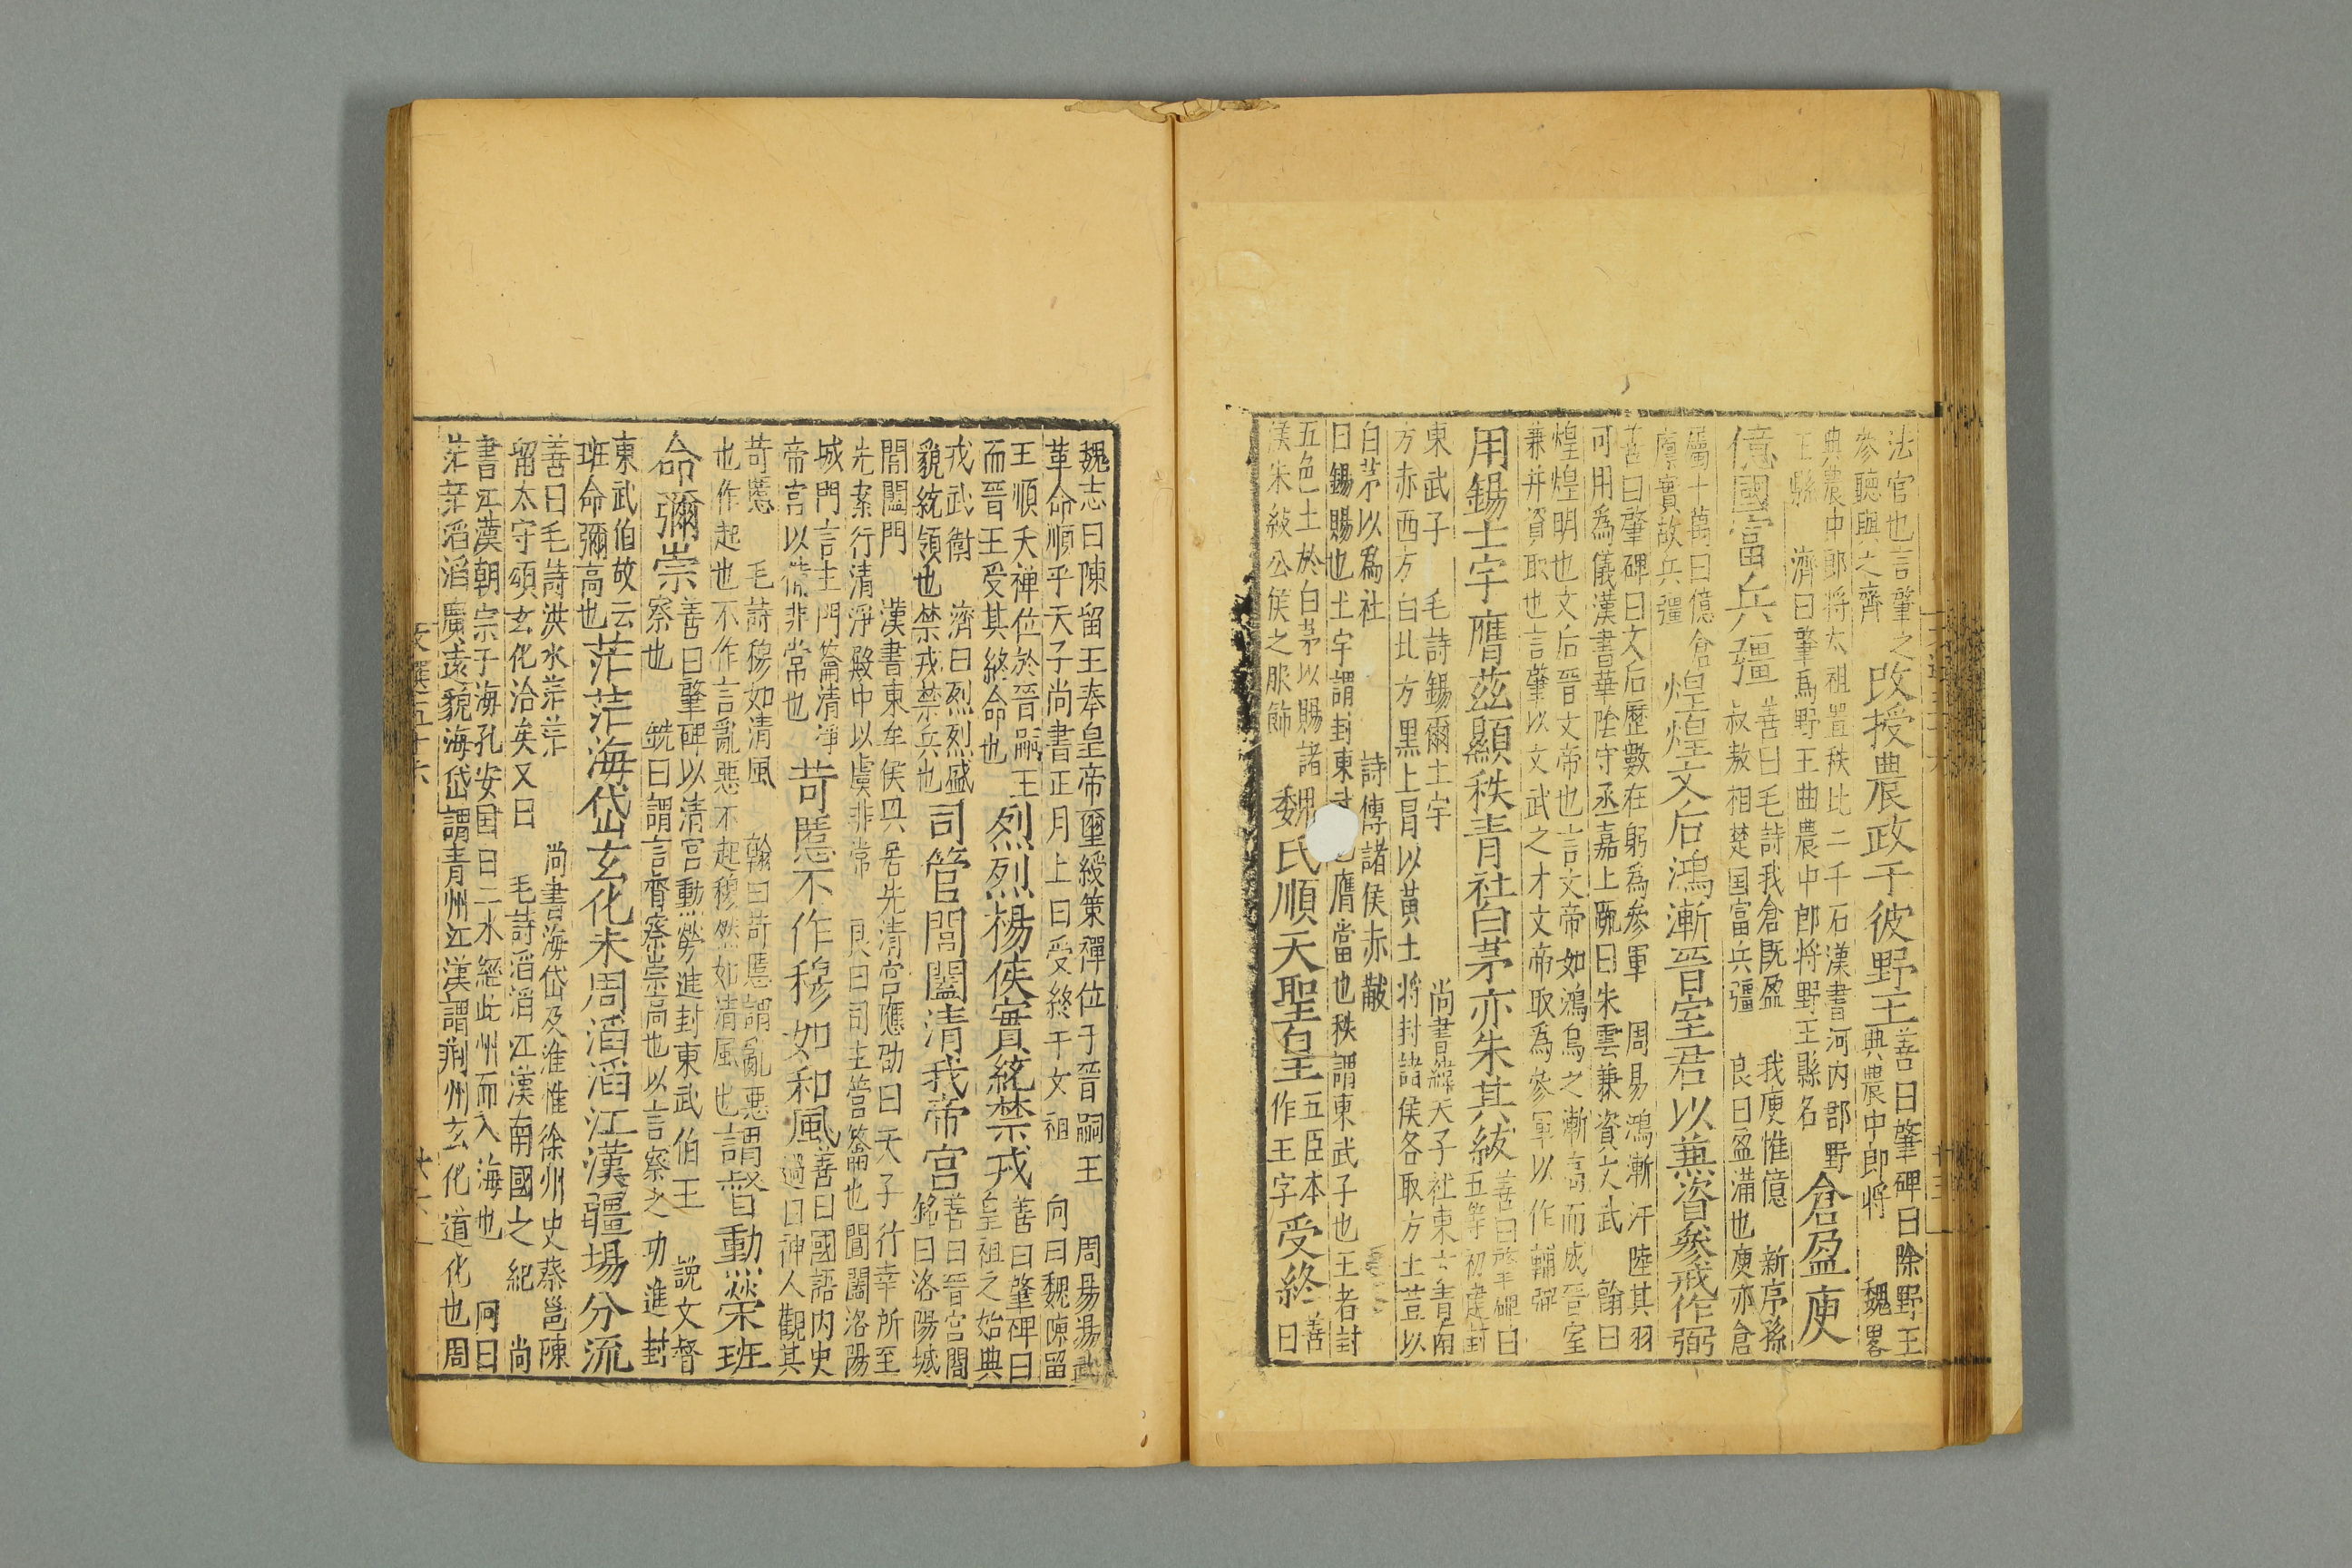 法官也言肇之
參聽與之齊
改授農政于彼野王
善曰肇碑曰除野王
典農中郎將　魏畧
典農中郎將太祖置秩比二千石漢書河内郡野
王縣　濟曰肇爲野王曲農中郎將野王縣名
倉盈庾
億國富兵彊
善曰毛詩我倉既盈　我庾惟億　新序孫
叔敖相楚国富兵彊　良曰盈滿也庾亦倉
屬十萬曰億倉
廪實故兵彊
煌煌文后鴻漸晉室君以兼資參戎作弼
善曰肇碑曰文后歷數在躬為參軍　周易鴻漸汗陸其羽
可用為儀漢書華陰守丞嘉上䟽曰朱雲兼資文武　翰曰
煌煌明也文后晉文帝也言文帝如鴻鳥之漸高而成晉室
兼并資取也言肇以文武之才文帝取為參軍以作輔弼
用錫土宇膺茲顯秩青社白茅亦朱其紱
善曰肇碑曰
五等初建封
東武子　毛詩錫爾土宇　尚書緯天子社東方青南
方赤西方白北方黑上冒以黃土将封諸侯各取方土苴以
白茅以爲社　詩傳諸侯赤黻
曰錫賜也土宇謂封東武也膺當也秩謂東武子也王者封
五色土於白茅以賜諸
漢朱紱公侯之服飾
魏氏順天聖皇
五臣本
作王字
受終
善
曰
魏志曰陳留王奉皇帝璽綬策禪位于晉嗣王　周易湯武
革命順乎天子尚書正月上日受終于文祖　向曰魏陳留
王順天禅位於晉嗣王
而晉王受其終命也
烈烈楊侯實統禁戎
善曰肇碑曰
皇祖之始典
戎武衛　濟曰烈烈盛
貌統領也禁戎禁兵也
司管閶闔清我帝宮
善曰晉宮閣
銘曰洛陽城
閶闔門　漢書東牟侯興居先清宮應劭曰天子行幸所至
先案行清淨殿中以虞非常　良曰司主管籥也閶闔洛陽
城門言主門籥清淨
帝宮以備非常也
苛慝不作穆如和風
善曰國語内史
過曰神人觀其
苛慝　毛詩穆如清風　翰曰苛慝謂亂惡
也作起也不作言亂惡不起穆然如清風也
謂督動勞班
命彌崇
善曰肇碑以清宮勤勞進封東武伯王　說文督
察也　銑曰謂言督察崇高也以言察之功進封
東武伯故云
班命彌高也
茫茫海岱玄化未周滔滔江漢疆場分流
善曰毛詩洪水茫茫　尚書海岱及淮惟徐州史蔡邕陳
留太守頌玄化洽矣又曰　毛詩滔滔江漢南國之紀　尚
書江漢朝宗于海孔安国曰二水經此州而入海也　向曰
茫茫滔滔廣遠貌海岱謂青州江漢謂荆州玄化道化也周
文選五十六